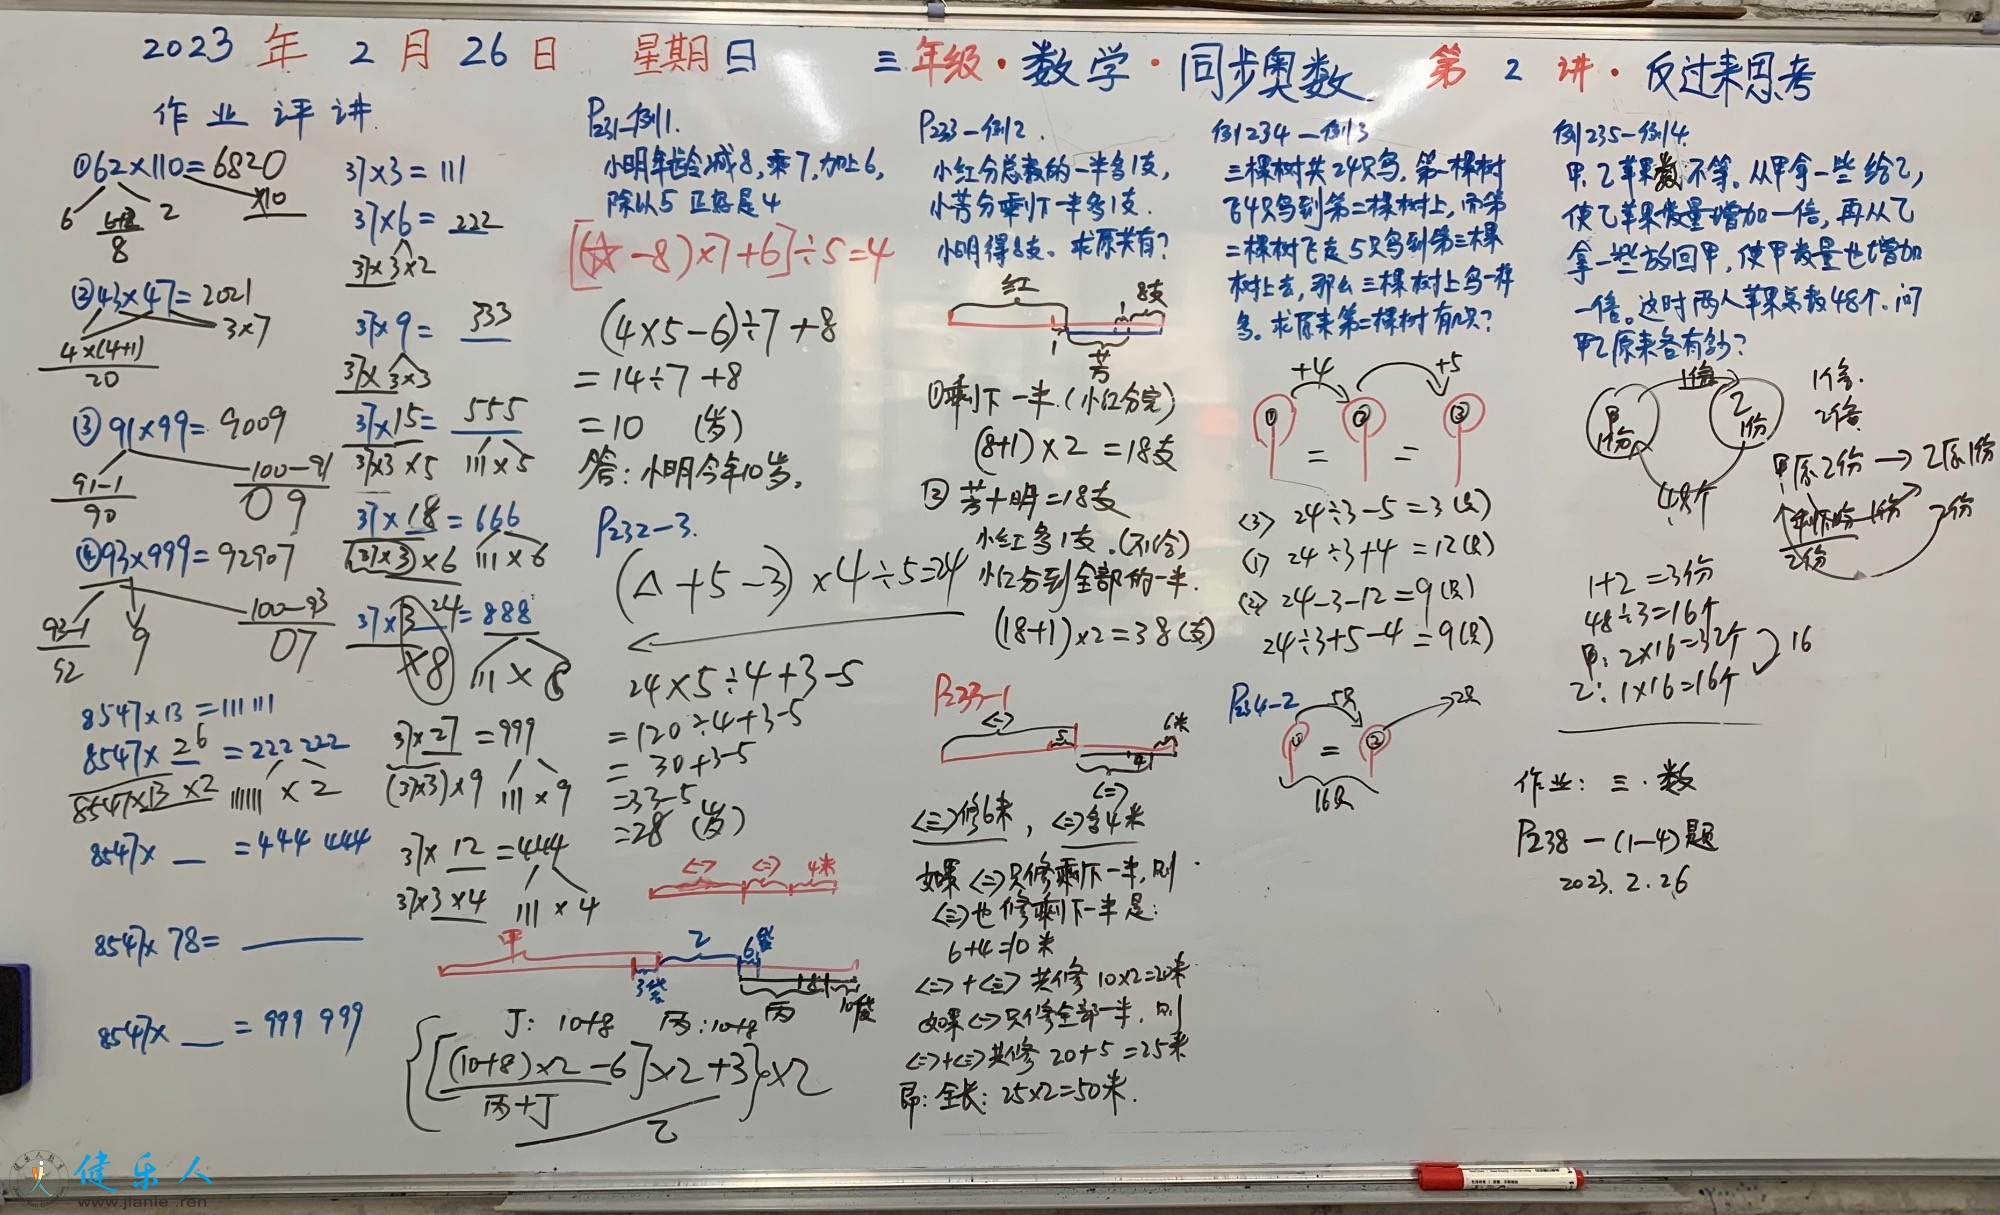 2023 年 2 月 26 日 星期日 三年级·数学·同步奥数 第 2 讲·反过来思考
作业评讲
①62×110=6820
6 6+2 2 ×10
8
②43×47=2021
4×(4+1) 3×7
20
③91×99=9009
91-1 100-91
90 09
④93×999=92907
93-1 9 100-93
92 07
8547×13=111111
8547×26=222222
8547×13×2 111111×2
8547×__=444 444
8547×78=____
8547×__=999 999
37×3=111
37×6=222
37×3×2
37×9=333
37×3×3
37×15=555
37×3×5 111×5
37×18=666
(37×3)×6 111×6
37×3 24=888
×8 111×8
37×27=999
(37×3)×9 111×9
37×12=444
37×3×4 111×4
P231-例1.
小明年龄减8,乘7,加上6,
除以5正好是4
[(☆-8)×7+6]÷5=4
(4×5-6)÷7+8
=14÷7+8
=10 (岁)
答:小明今年10岁。
P232-3.
(△+5-3)×4÷5=24
24×5÷4+3-5
=120÷4+3-5
=30+3-5
=33-5
=28 (岁)
<一> <二> 4米
甲 乙 6袋
3袋 丙 8 10袋
丁: 10+8 丙:10+8
{[(10+8)×2-6]×2+3}×2
丙+丁
乙
P233-例2.
小红分总数的一半多1支,
小芳分剩下一半多1支.
小明得8支。求原共有?
红 1 8支
1 芳
①剩下一半.(小红分完)
(8+1)×2=18支
② 芳+明=18支
小红多1支.(不给)
小红分到全部的一半.
(18+1)×2=38(支)
P233-1
<一> 5 6米
4
<二>
<三>修6米,<二>多4米
如果<二>只修剩下一半,则
<三>也修剩下一半是:
6+4=10米
<二>+<三>共修 10×2=20米
如果<一>只修全部一半,则
<二>+<三>共修 20+5=25米
即:全长:25×2=50米.
例234-例3
三棵树共24只鸟,第一棵树
飞4只鸟到第二棵树上,而第
二棵树飞走5只鸟到第三棵
树上去,那么三棵树上鸟一样
多。求原来第二棵树有几只?
+4 +5
① ② ③
= =
<3> 24÷3-5=3(只)
<1> 24÷3+4=12(只)
<2> 24-3-12=9(只)
24÷3+5-4=9(只)
P234-2
5只 2只
① = ②
16只
例235-例4.
甲.乙苹果数不等。从甲拿一些给乙,
使乙苹果数量增加一倍,再从乙
拿一些放回甲,使甲数量也增加
一倍。这时两人苹果总数48个.问
甲乙原来各有多少?
1倍
甲 1份 乙 1份
48个
1倍.
2倍
甲原2份→乙原1份
剩下的 1份 2份
2份
1+2=3份
48÷3=16个
甲:2×16=32个
乙:1×16=16个
16
作业:三·数
P238-(1-4)题
2023.2.26
健乐人
www.jianle.ren